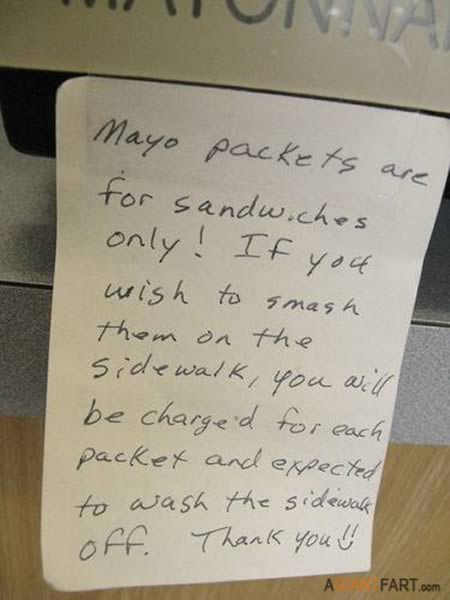 MAYONNA
Mayo packets are
for sandwiches
only! If you
wish to smash
them on the
sidewalk, you will
be charged for each
packet and expected
to wash the sidewalk
off. Thank you!!
FART.com